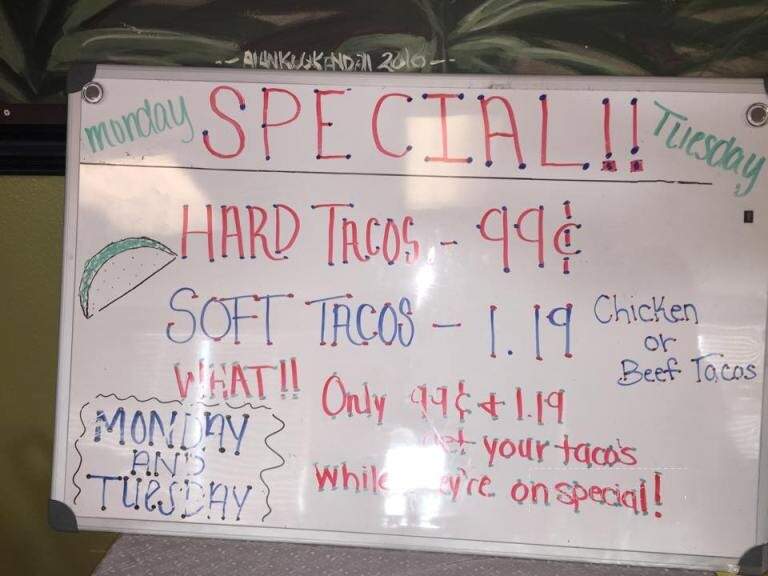 monday SPECIAL!! Tuesday
HARD TACOS - 99¢
SOFT TACOS - 1.19
Chicken
or
Beef Tacos
WHAT!!
Only 99¢ + 1.19
your tacos
while they're on special!
MONDAY
AND
TUESDAY